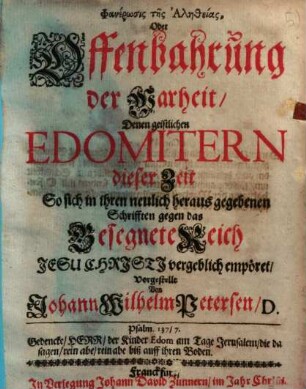 Φανέρωσις τῆς Ἀληθείας,
Oder
Offenbahrung
der Warheit/
Denen geistlichen
EDOMITERN
dieser Zeit
So sich in ihren neulich heraus gegebenen
Schrifften gegen das
Gesegnete Reich
JESU CHRISTI vergeblich empöret/
Vorgestellt
Von
Johann Wilhelm Petersen/ D.
Psalm. 137/7.
Gedencke/ HERR/ der Kinder Edom am Tage Jerusalem/ die da
sagen/ rein abe/ rein abe biß auff ihren Boden.
Franckfurt/
In Verlegung Johann David Zunners/ im Jahr